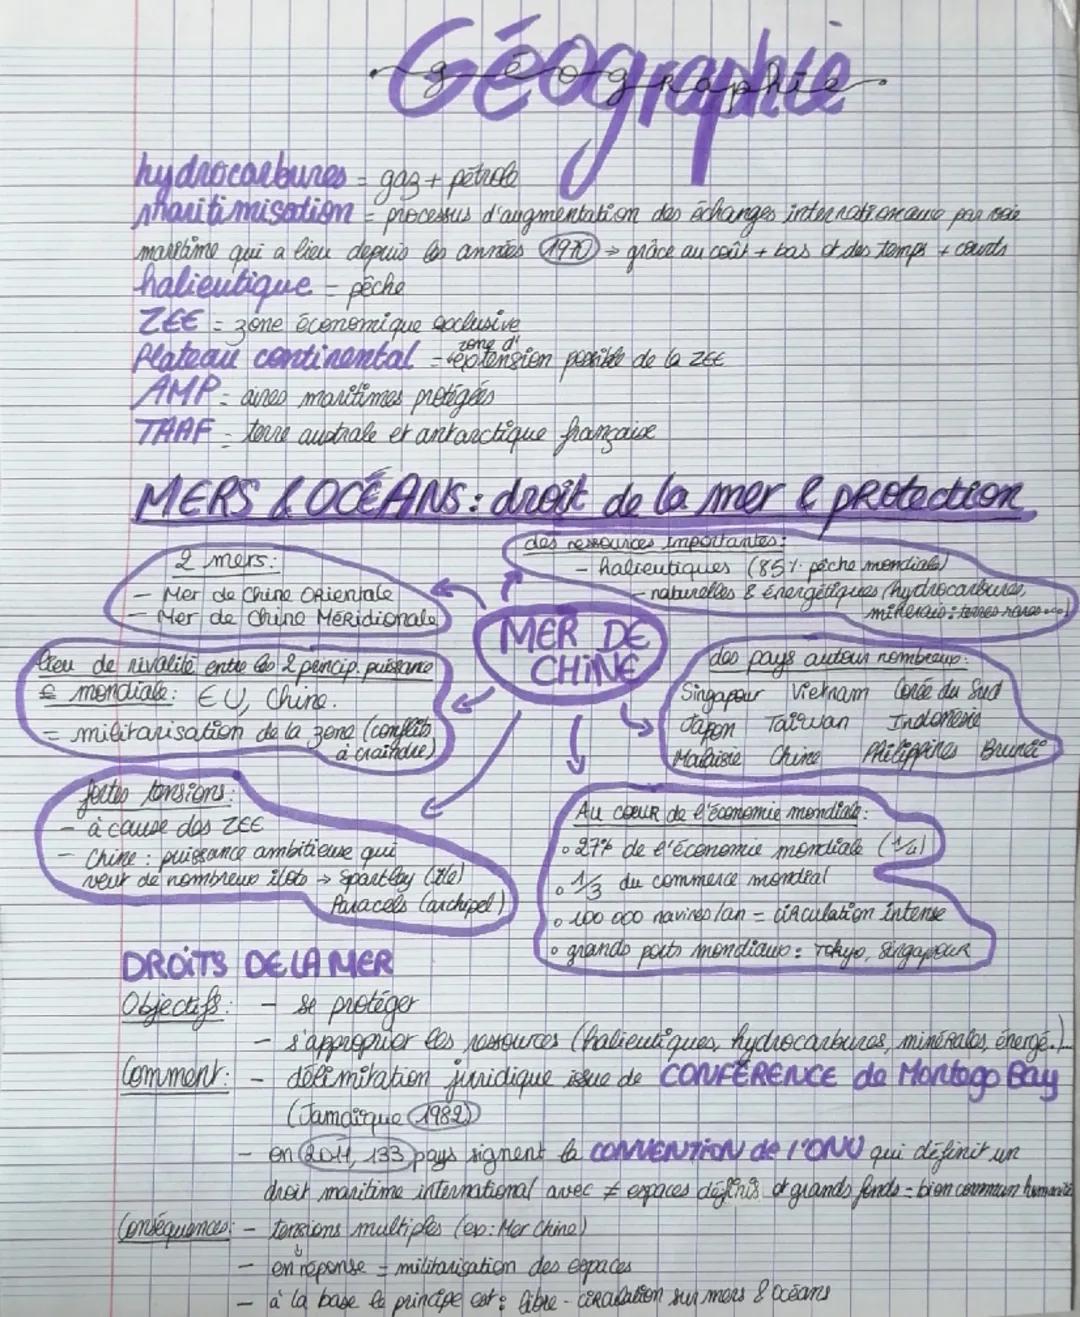 Géographie
géographie
hydrocarbures = gaz + pétrole
maritimisation = processus d'augmentation des échanges internationaux par voie
maritime qui a lieu depuis les années 1970 → grâce au coût + bas et des temps + courts
halieutique = pêche
ZEE = zone économique exclusive
Plateau continental = zone d'extension possible de la ZEE
AMP = aires maritimes protégées
TAAF = terre australe et antarctique française
MERS & OCÉANS : droit de la mer & protection
2 mers :
- Mer de Chine Orientale
- Mer de Chine Méridionale
des ressources importantes :
- halieutiques (85% pêche mondiale)
- naturelles & énergétiques (hydrocarbures,
minerais : terres rares...)
MER DE
CHINE
lieu de rivalité entre les 2 princip. puissance
mondiale : EU, Chine.
= militarisation de la zone (conflits
à craindre)
des pays autour nombreux :
Singapour Vietnam Corée du Sud
Japon Taïwan Indonésie
Malaisie Chine Philippines Brunéi
fortes tensions :
- à cause des ZEE
- Chine : puissance ambitieuse qui
veut de nombreux îlots → (île)
Paracels (archipel)
Au coeur de l'économie mondiale :
• 27% de l'économie mondiale (1/4)
• 1/3 du commerce mondial
• 100 000 navires/an = circulation intense
• grands ports mondiaux : Tokyo, Singapour
DROITS DE LA MER
Objectifs : - se protéger
- s'approprier les ressources (halieutiques, hydrocarbures, minérales, énergé.)...
Comment : - délimitation juridique issue de CONFÉRENCE de Montego Bay
(Jamaïque 1982)
- en 2011, 133 pays signent la CONVENTION de l'ONU qui définit un
droit maritime international avec ≠ espaces définis et grands fonds = bien commun humanité
Conséquences : - tensions multiples (ex : Mer Chine)
↓
- en réponse = militarisation des espaces
- à la base le principe est : libre-circulation sur mers & océans